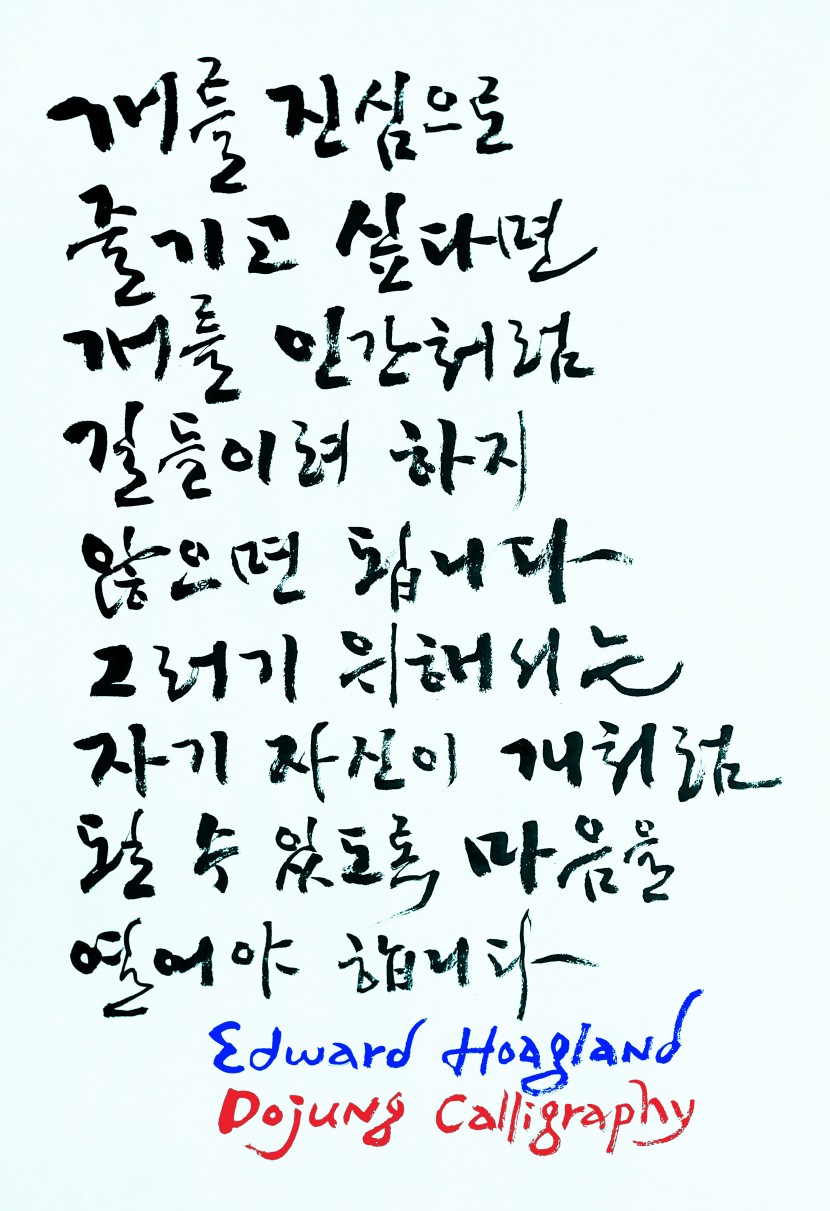 개를 진심으로
즐기고 싶다면
개를 인간처럼
길들이려 하지
않으면 됩니다
그러기 위해서는
자기 자신이 개처럼
될 수 있도록 마음을
열어야 합니다
Edward Hoagland
Dojung Calligraphy